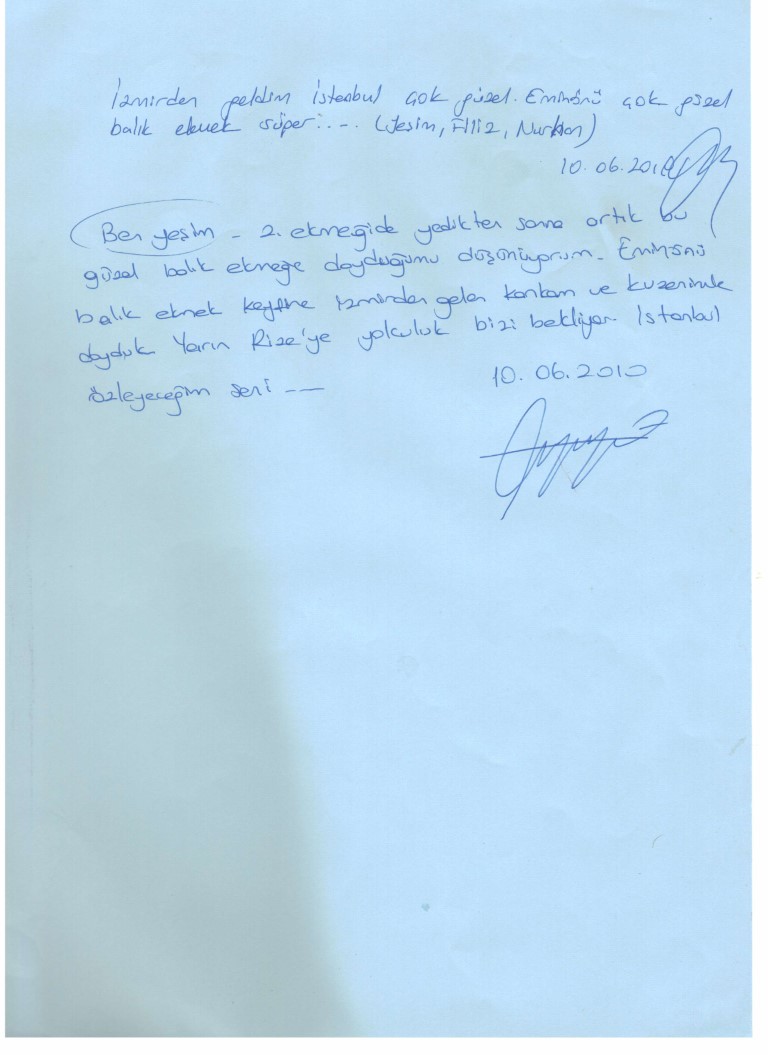 İzmirden geldim İstanbul çok güzel. Eminönü çok güzel
balık ekmek süper:.-.. (Yeşim, Filiz, Nurhan)
10.06.2010
Ben yeşim - 2. ekmeğide yedikten sonra artık bu
güzel balık ekmeğe doyduğumu düşünüyorum. Eminönü
balık ekmek keyfine İzmirden gelen kankam ve kuzenimle
doyduk Yarın Rize'ye yolculuk bizi bekliyor. İstanbul
özleyeceğim seni ---
10.06.2010